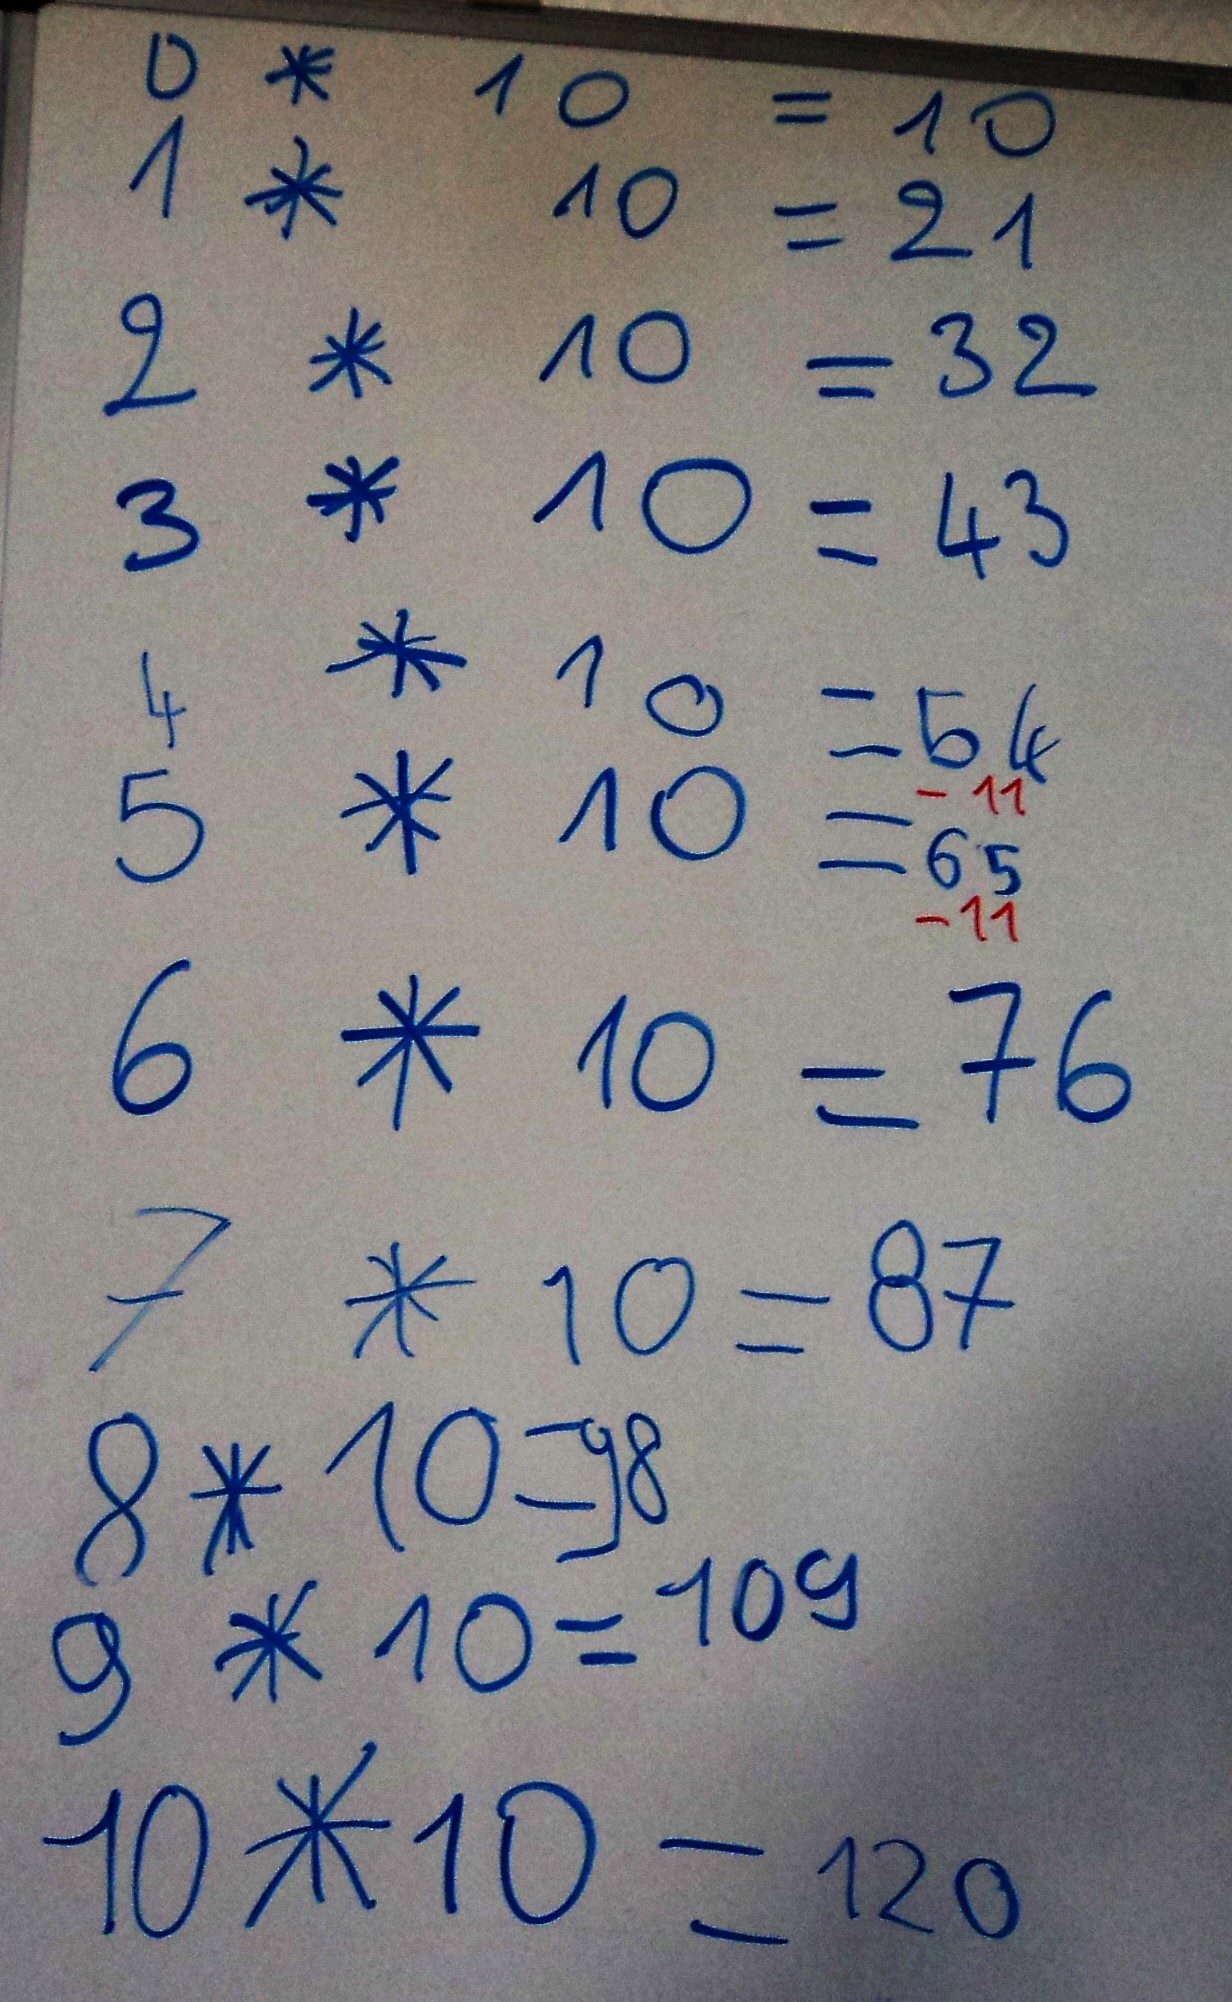 0 * 10 = 10
1 * 10 = 21
2 * 10 = 32
3 * 10 = 43
4 * 10 = 54
-11
5 * 10 = 65
-11
6 * 10 = 76
7 * 10 = 87
8 * 10 = 98
9 * 10 = 109
10 * 10 = 120